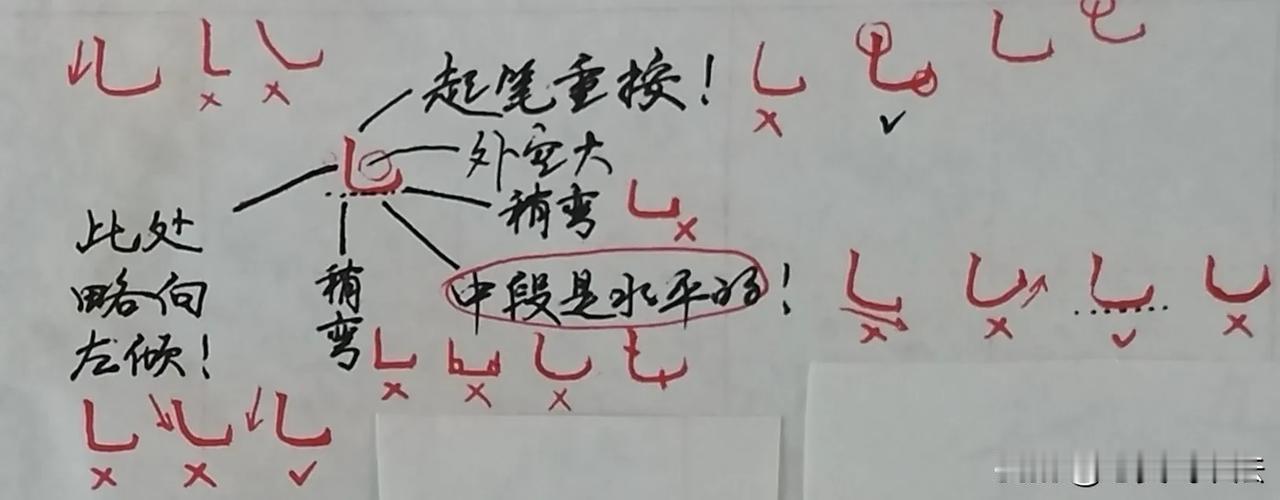 起笔重按！
外空大
稍弯
此处
略向
左倾！
稍
弯
中段是水平的！